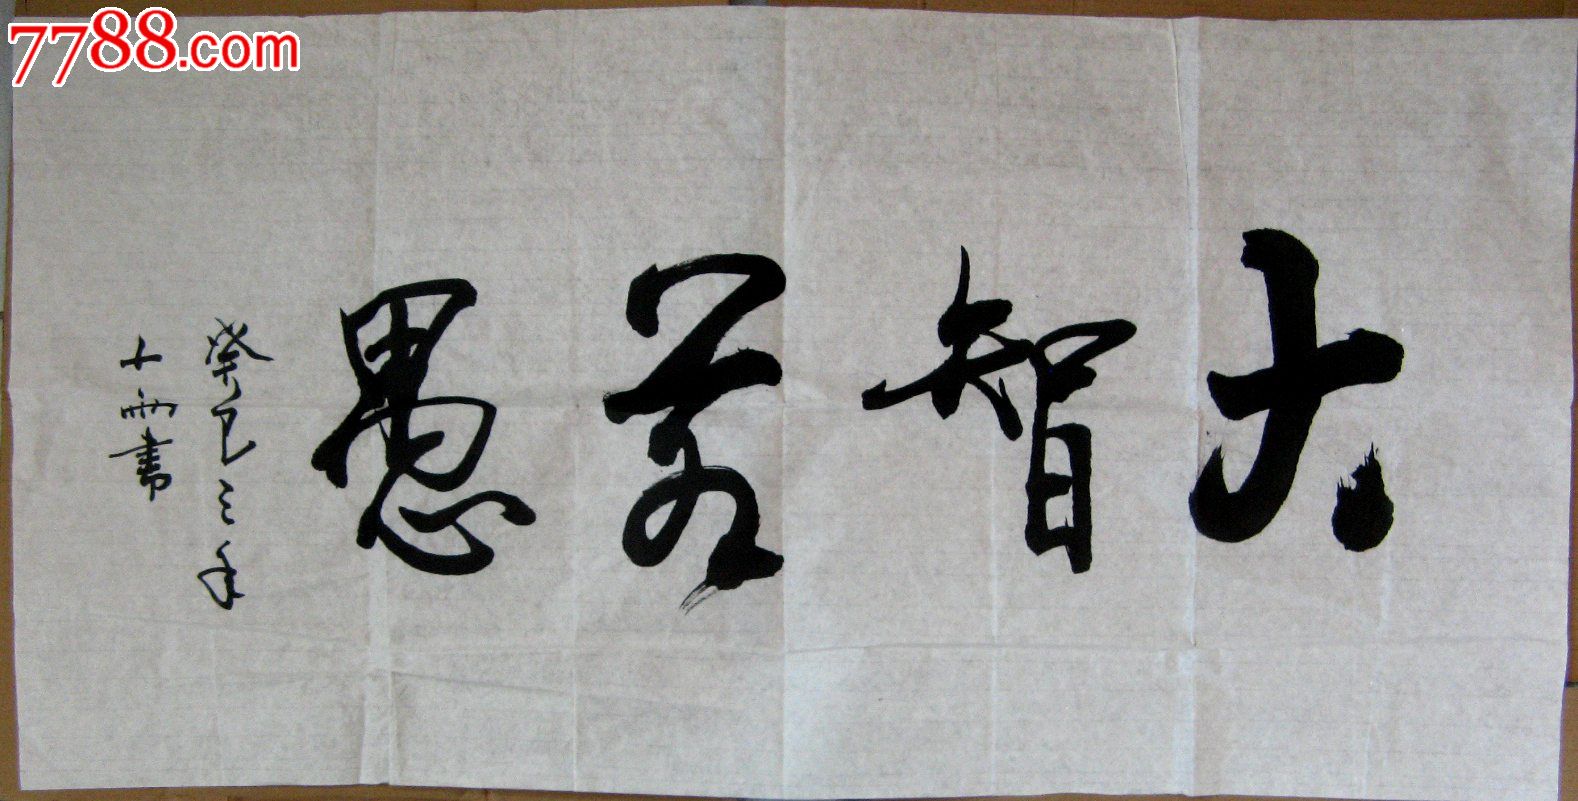 7788.com
大智若愚
癸巳之年
小雨書